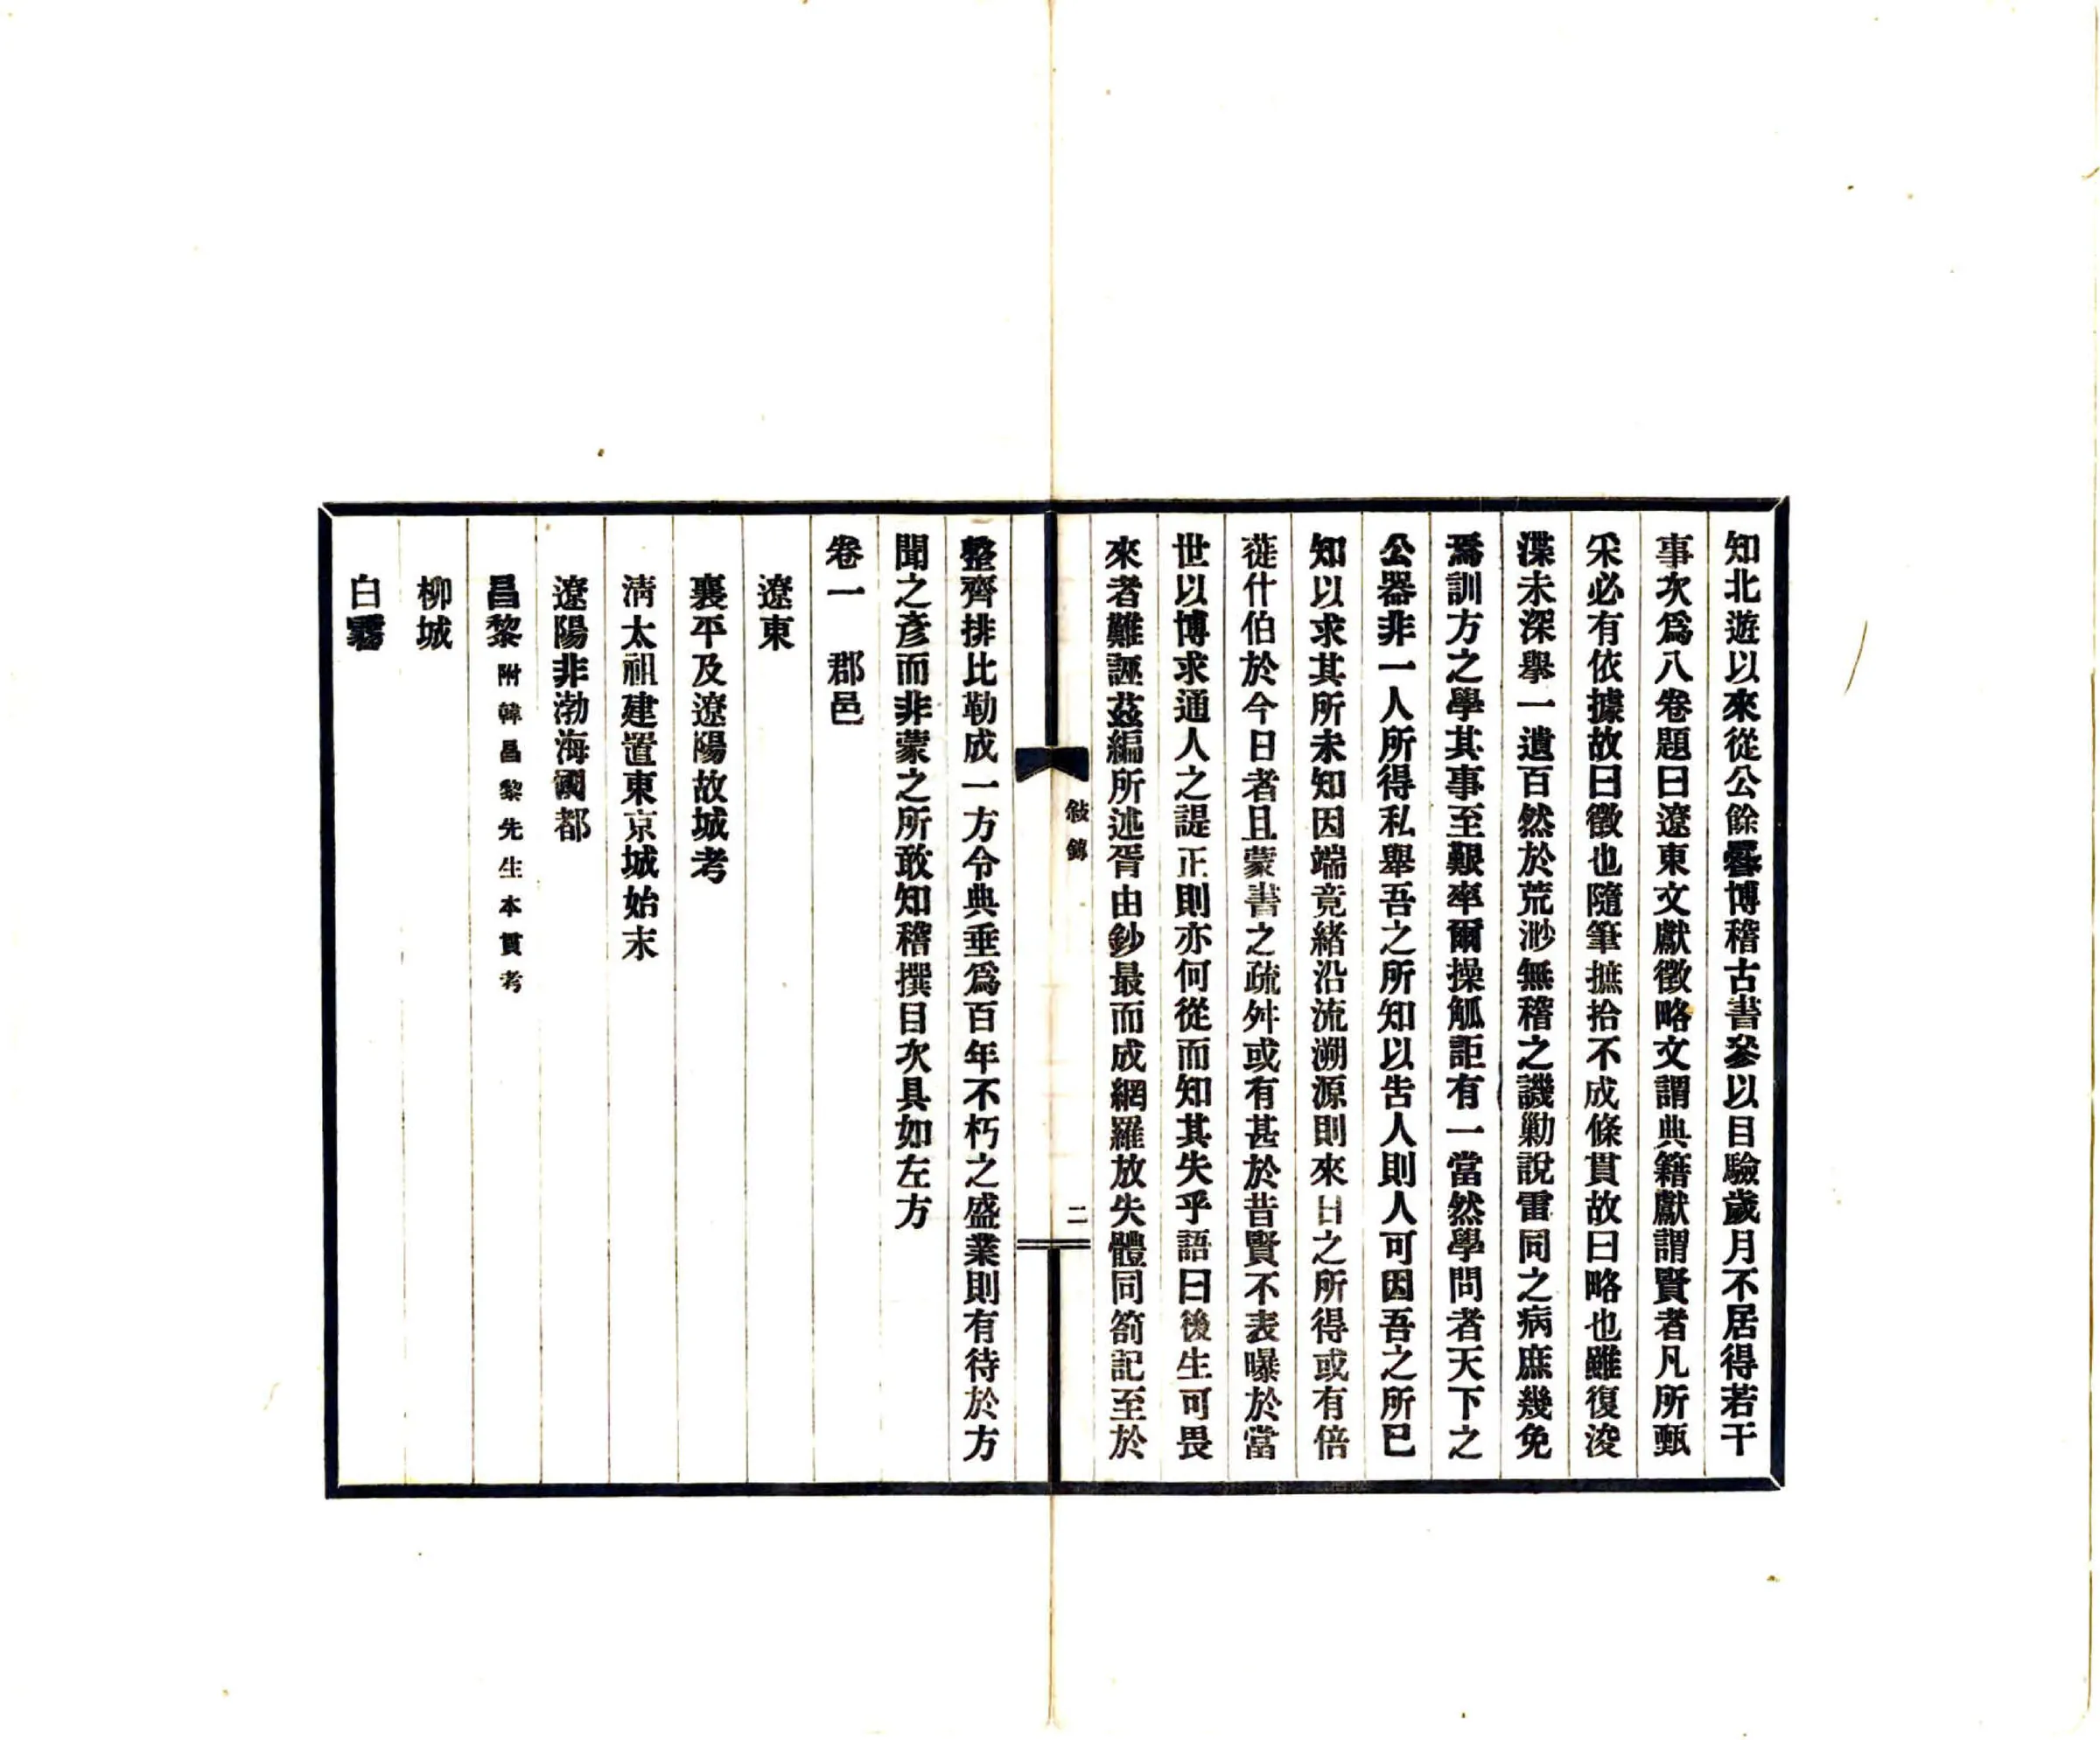 知北遊以來從公餘暑博稽古書參以目驗歲月不居得若干
事次爲八卷題曰遼東文獻徵略文謂典籍獻謂賢者凡所甄
采必有依據故曰徵也隨筆摭拾不成條貫故曰略也雖復浚
渫未深舉一遺百然於荒渺無稽之譏勦說雷同之病庶幾免
焉訓方之學其事至艱率爾操觚詎有一當然學問者天下之
公器非一人所得私舉吾之所知以告人則人可因吾之所已
知以求其所未知因端竟緒沿流溯源則來日之所得或有倍
蓰什伯於今日者且蒙書之疏舛或有甚於昔賢不表曝於當
世以博求通人之諟正則亦何從而知其失乎語曰後生可畏
來者難誣茲編所述胥由鈔最而成網羅放失體同箚記至於
敍錄
二
整齊排比勒成一方令典垂爲百年不朽之盛業則有待於方
聞之彥而非蒙之所敢知稽撰目次具如左方
卷一 郡邑
遼東
襄平及遼陽故城考
淸太祖建置東京城始末
遼陽非渤海國都
昌黎附韓昌黎先生本貫考
柳城
白霫